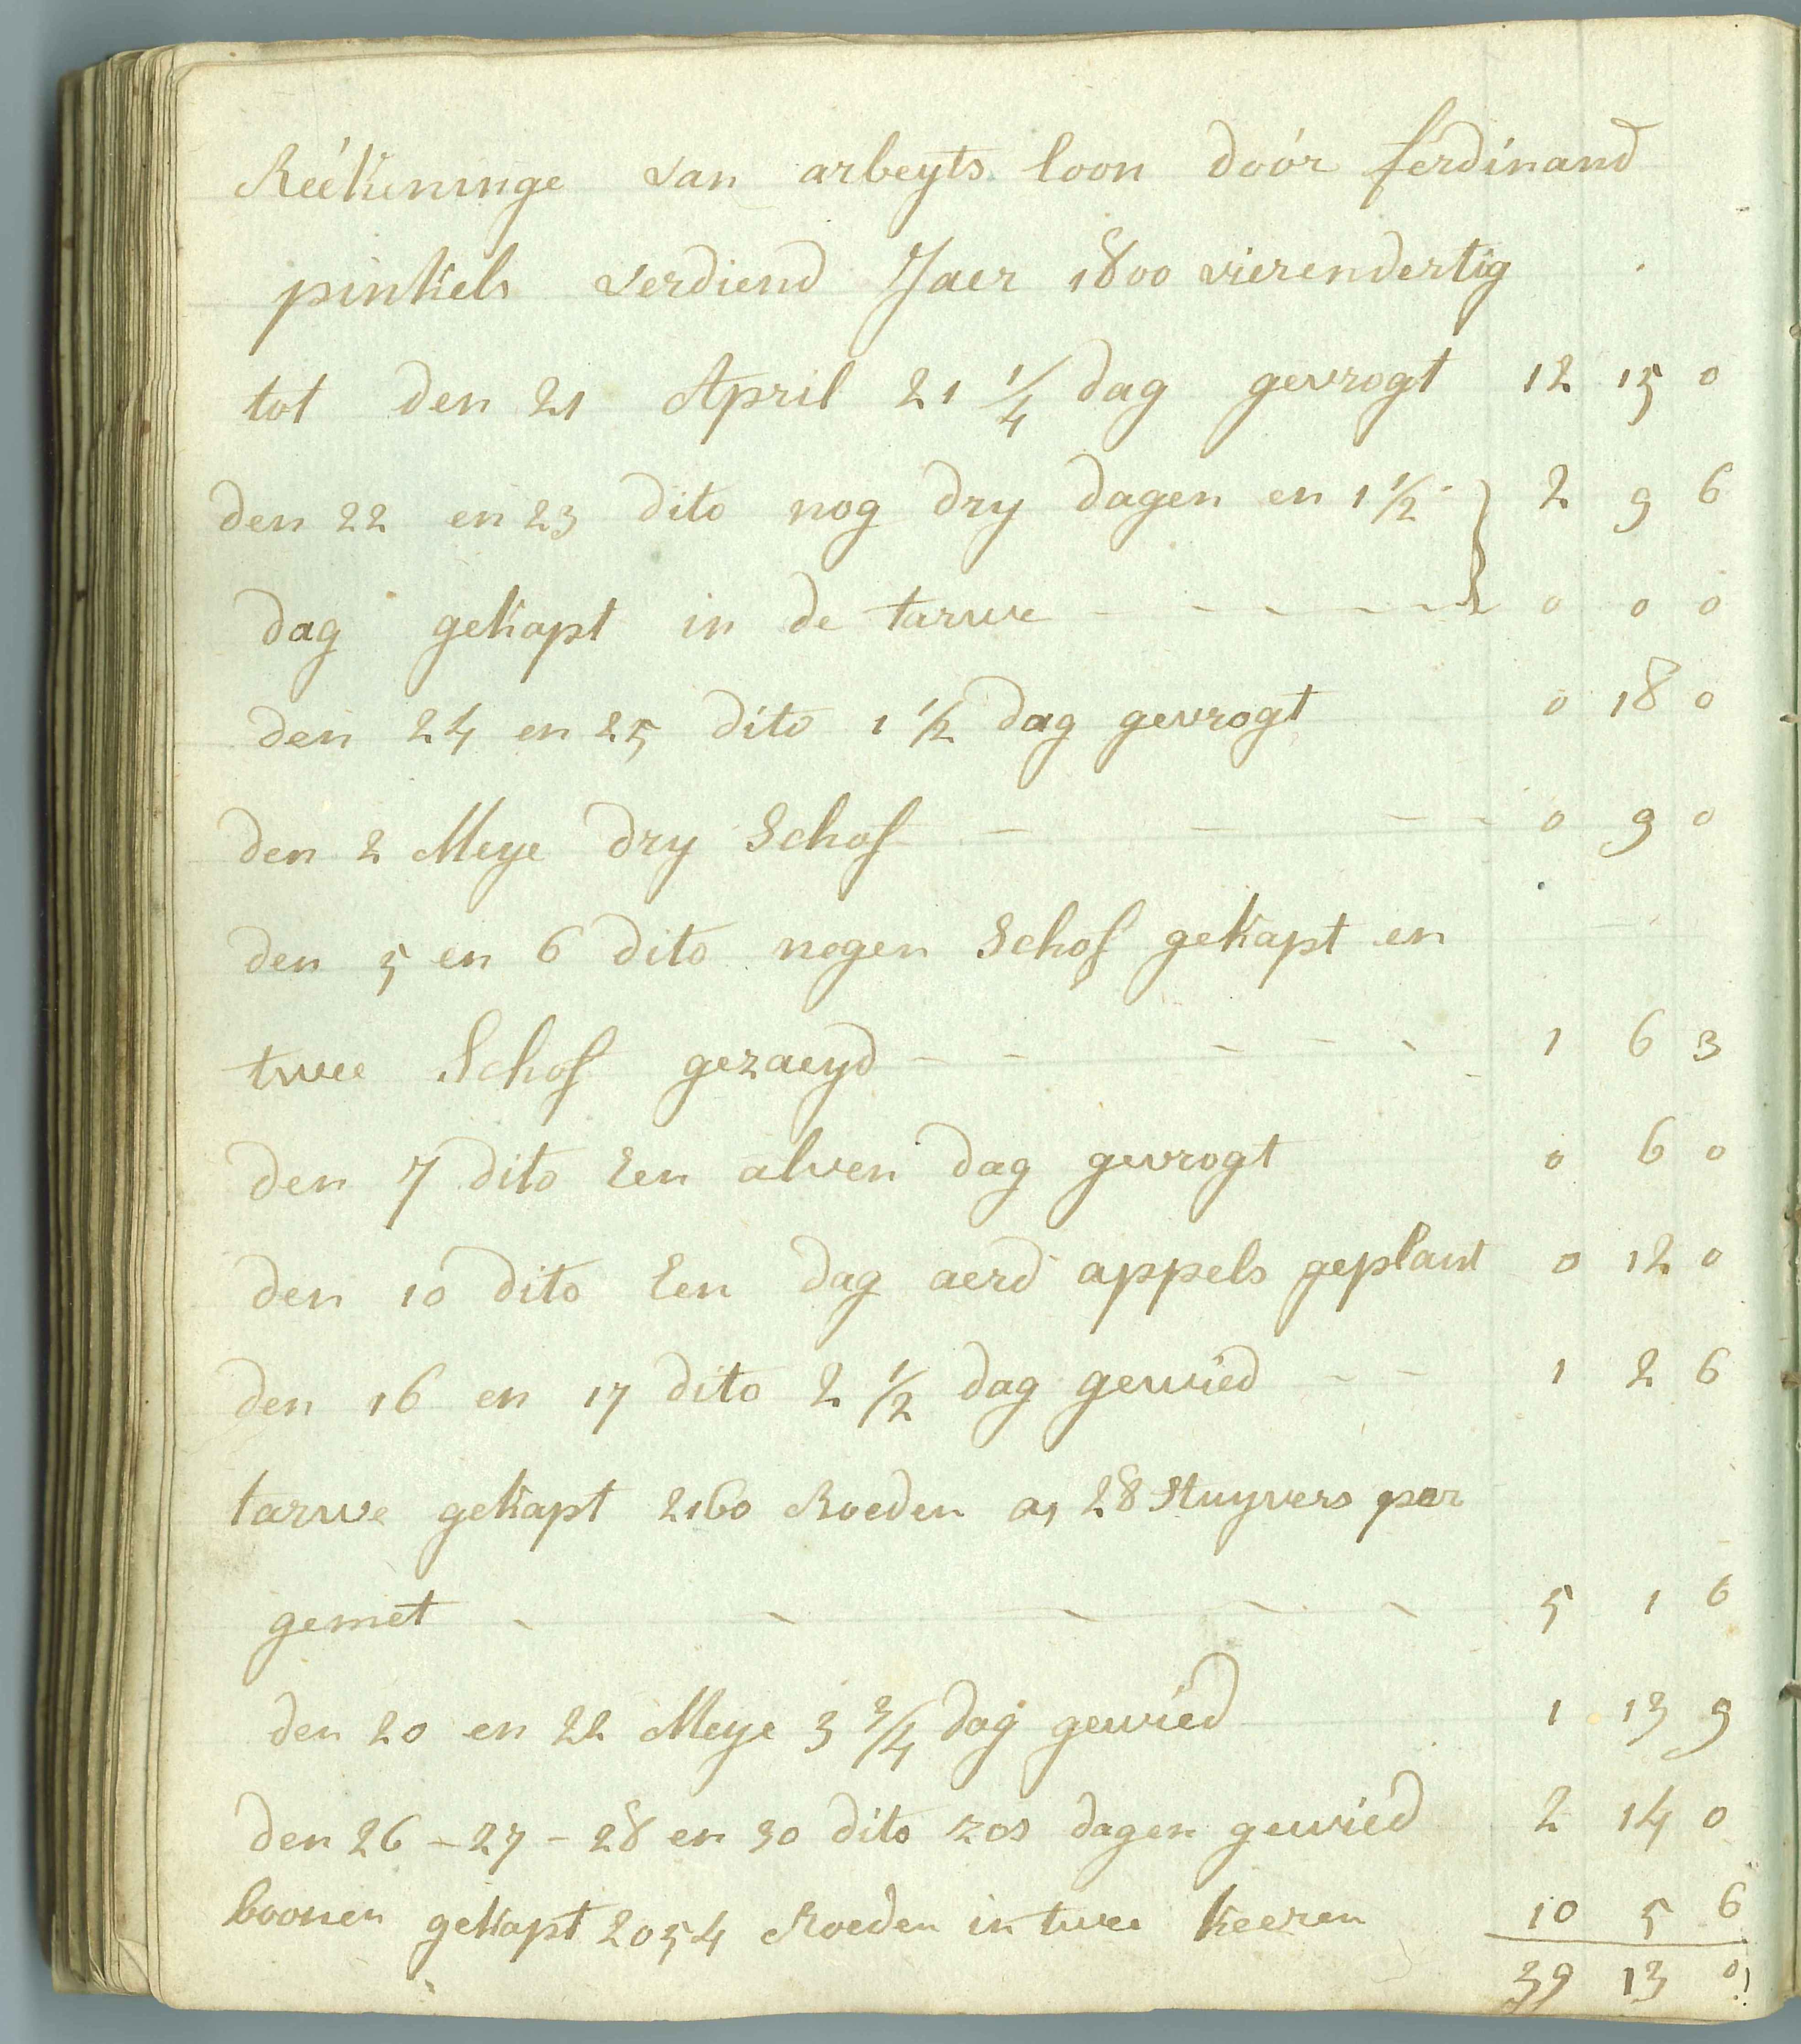 Reékeninge van arbeyts loon doór ferdinand
pinkels verdiend Jaer 1800 vierendertig
tot den 21 April 21 1/4 dag gevrogt 12 15 0
den 22 en 23 dito nog dry dagen en 1 1/2 } 2 9 6
dag gekapt in de tarwe - - - - - 0 0 0
den 24 en 25 dito 1 1/2 dag gevrogt 0 18 0
den 2 Meye dry Schof - - - - 0 9 0
den 5 en 6 dito negen Schof gekapt en
twee Schof gezaeyd - - - - - 1 6 3
den 7 dito Een alven dag gevrogt 0 6 0
den 10 dito Een dag aerd appels geplant 0 12 0
den 16 en 17 dito 2 1/2 dag gewied - - 1 2 6
tarwe gekapt 2160 Roeden a, 28 Stuyvers par
gemet - - - - - 5 1 6
den 20 en 22 Meye 3 3/4 dag gewied 1 13 9
den 26 - 27 - 28 en 30 dito zos dagen gewied 2 14 0
boonen gekapt 2054 Roeden in twee keeren 10 5 6
39 13 0